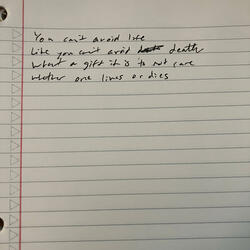 You can't avoid life
Like you can't avoid death
What a gift it is to not care
whether one lives or dies